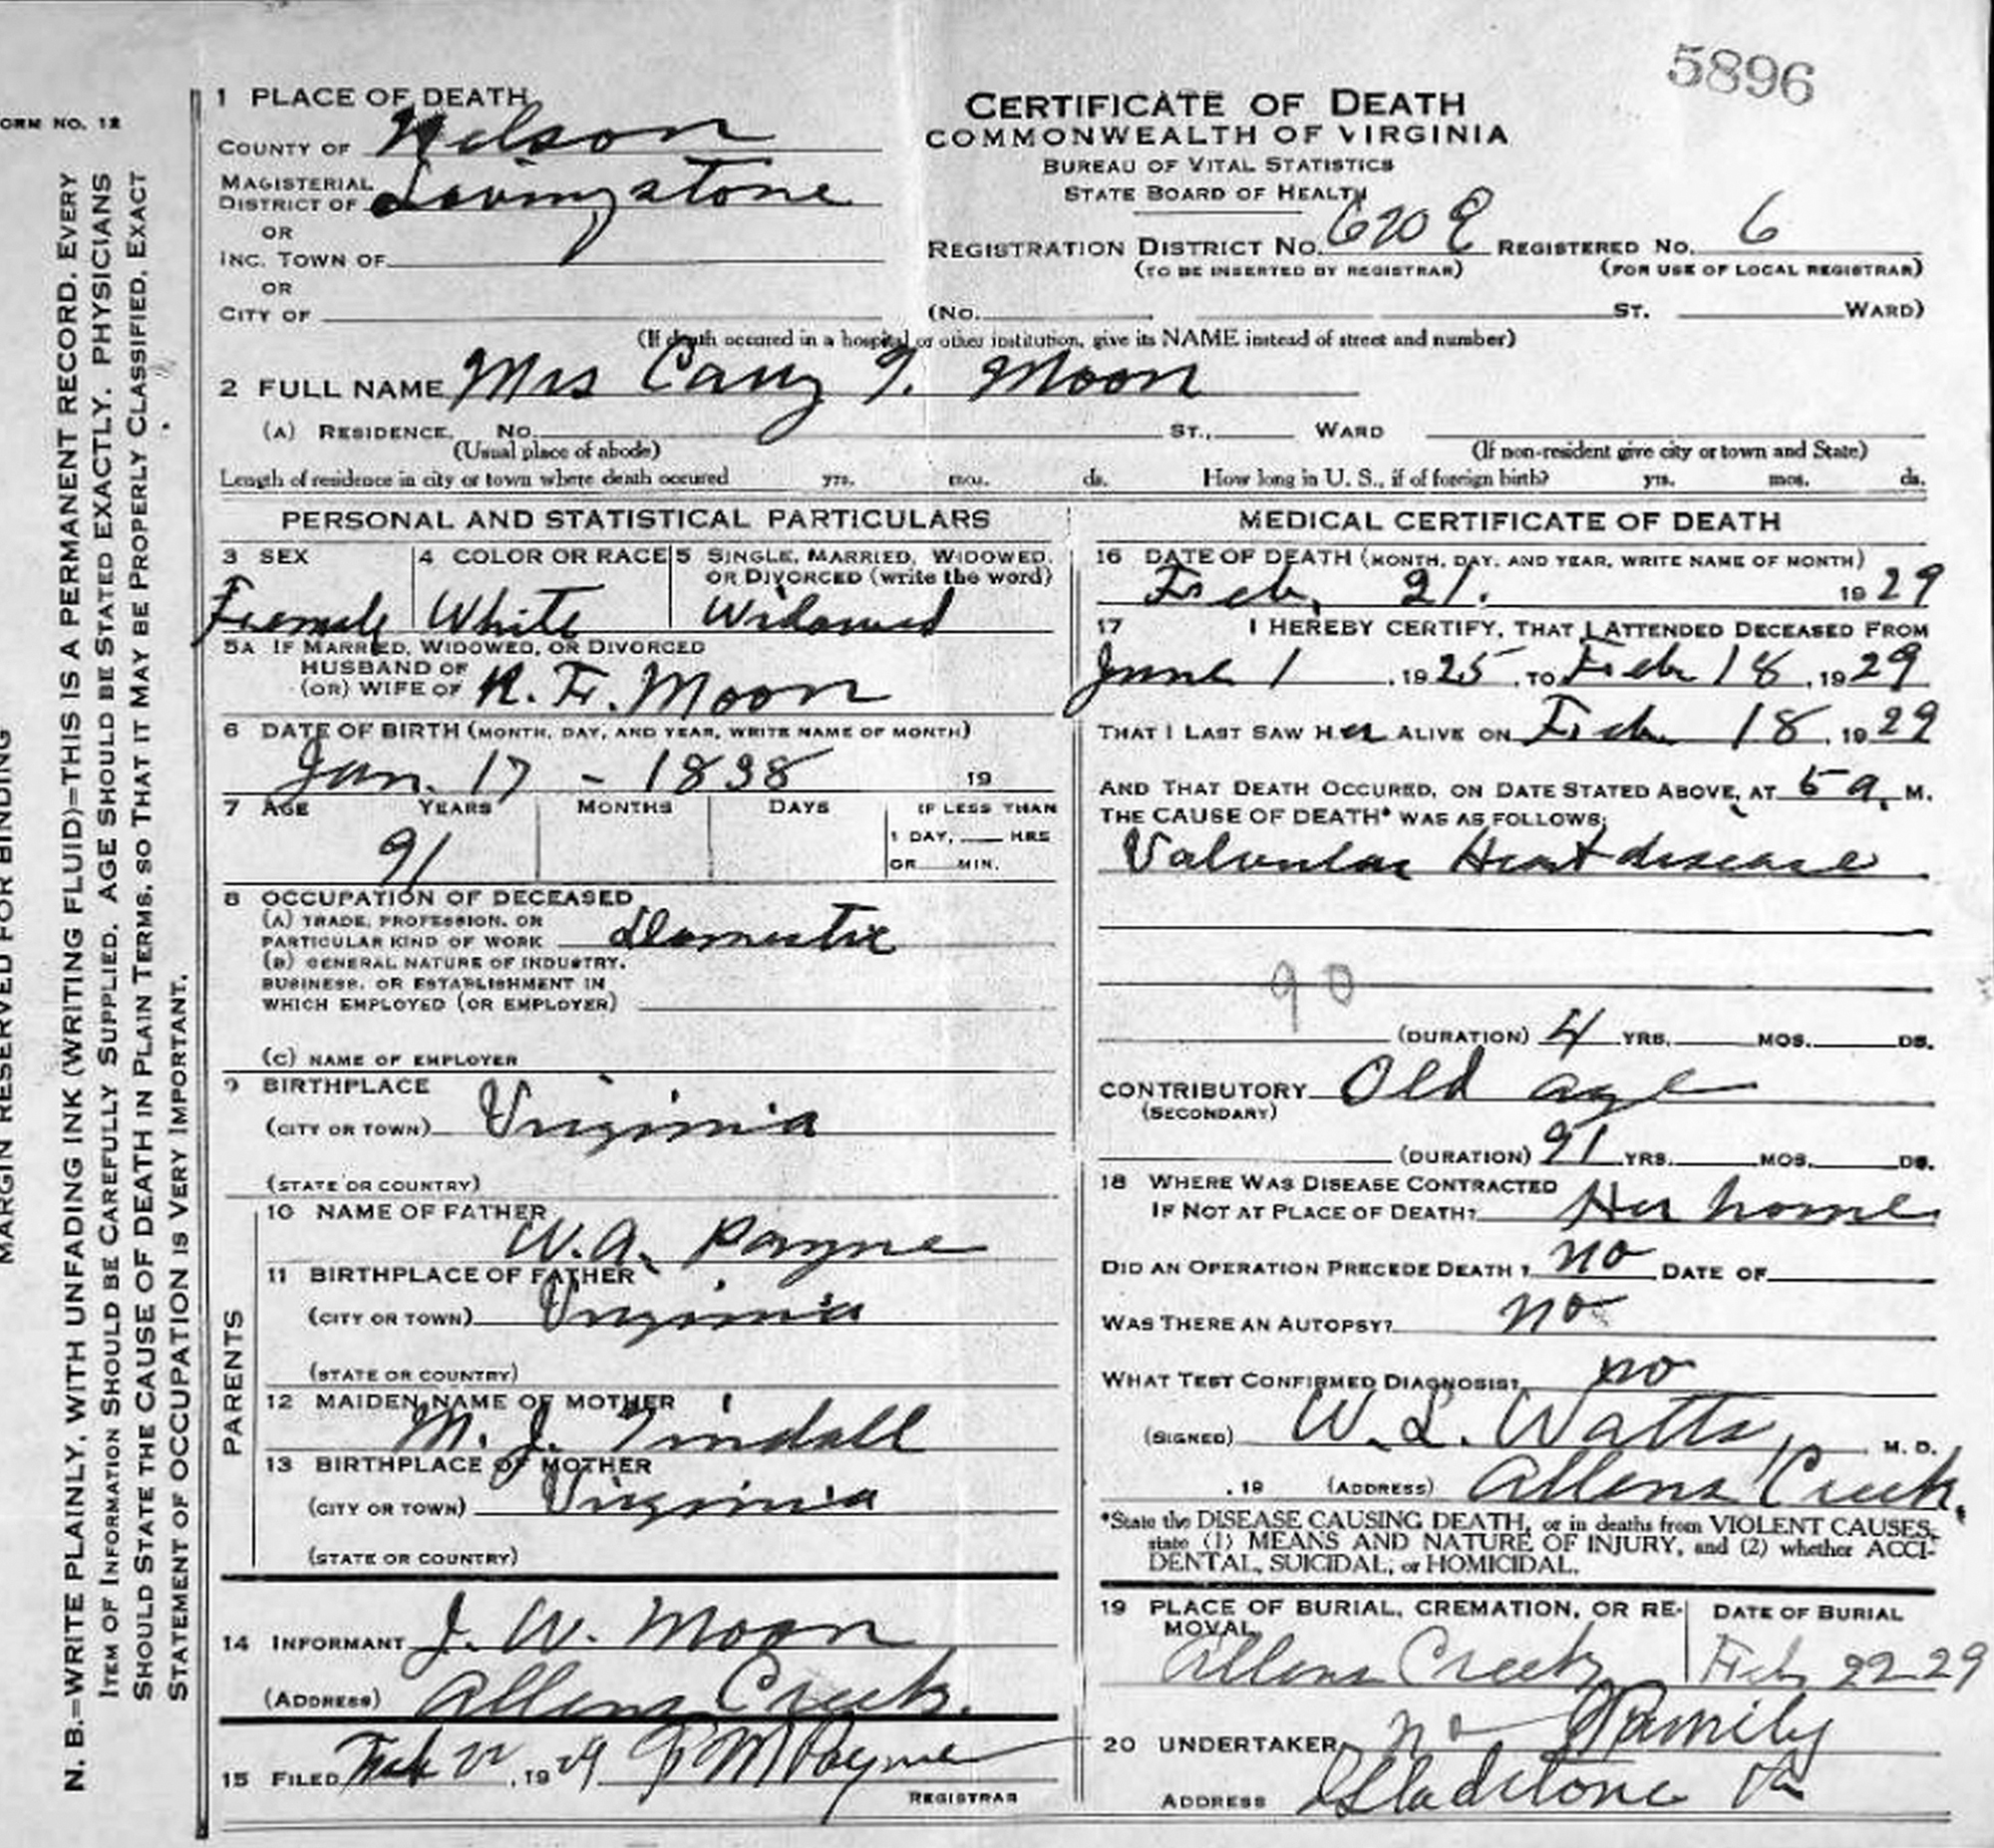 5896
ORM NO. 12
MARGIN RESERVED FOR BINDING
N. B.=WRITE PLAINLY, WITH UNFADING INK (WRITING FLUID)=THIS IS A PERMANENT RECORD. EVERY
ITEM OF INFORMATION SHOULD BE CAREFULLY SUPPLIED. AGE SHOULD BE STATED EXACTLY. PHYSICIANS
SHOULD STATE THE CAUSE OF DEATH IN PLAIN TERMS, SO THAT IT MAY BE PROPERLY CLASSIFIED. EXACT
STATEMENT OF OCCUPATION IS VERY IMPORTANT.
1 PLACE OF DEATH
COUNTY OF Nelson
MAGISTERIAL
DISTRICT OF Lovingstone
OR
INC. TOWN OF
OR
CITY OF
CERTIFICATE OF DEATH
COMMONWEALTH OF VIRGINIA
BUREAU OF VITAL STATISTICS
STATE BOARD OF HEALTH
REGISTRATION DISTRICT NO. 620 REGISTERED NO. 6
(TO BE INSERTED BY REGISTRAR) (FOR USE OF LOCAL REGISTRAR)
(NO. ST. WARD)
(If death occured in a hospital or other institution, give its NAME instead of street and number)
2 FULL NAME Mrs Moon
(A) RESIDENCE, NO. ST., WARD
(Usual place of abode) (If non-resident give city or town and State)
Length of residence in city or town where death occured yrs. mos. ds. How long in U. S., if of foreign birth? yrs. mos. ds.
PERSONAL AND STATISTICAL PARTICULARS
3 SEX 4 COLOR OR RACE 5 SINGLE, MARRIED, WIDOWED,
OR DIVORCED (write the word)
Female White Widowed
5A IF MARRIED, WIDOWED, OR DIVORCED
HUSBAND OF
(OR) WIFE OF R. F. Moon
6 DATE OF BIRTH (MONTH, DAY, AND YEAR, WRITE NAME OF MONTH)
Jan. 17 - 1838 19
7 AGE YEARS MONTHS DAYS IF LESS THAN
1 DAY, HRS
OR MIN.
91
8 OCCUPATION OF DECEASED
(A) TRADE, PROFESSION, OR
PARTICULAR KIND OF WORK Domestic
(B) GENERAL NATURE OF INDUSTRY,
BUSINESS, OR ESTABLISHMENT IN
WHICH EMPLOYED (OR EMPLOYER)
(C) NAME OF EMPLOYER
9 BIRTHPLACE
(CITY OR TOWN) Virginia
(STATE OR COUNTRY)
PARENTS
10 NAME OF FATHER
W. A. Payne
11 BIRTHPLACE OF FATHER
(CITY OR TOWN) Virginia
(STATE OR COUNTRY)
12 MAIDEN NAME OF MOTHER
M. J. Tindall
13 BIRTHPLACE OF MOTHER
(CITY OR TOWN) Virginia
(STATE OR COUNTRY)
14 INFORMANT J. W. Moon
(ADDRESS) Allens Creek.
15 FILED 22, 1929 M Payne
REGISTRAR
MEDICAL CERTIFICATE OF DEATH
16 DATE OF DEATH (MONTH, DAY, AND YEAR, WRITE NAME OF MONTH)
Feb, 21. 1929
17 I HEREBY CERTIFY, THAT I ATTENDED DECEASED FROM
June 1, 1925, TO Feb 18, 1929
THAT I LAST SAW HER ALIVE ON Feb 18, 1929
AND THAT DEATH OCCURED, ON DATE STATED ABOVE, AT 5 a. M.
THE CAUSE OF DEATH* WAS AS FOLLOWS:
Valvular Heart disease
90
(DURATION) 4 YRS. MOS. DS.
CONTRIBUTORY Old age
(SECONDARY)
(DURATION) 91 YRS. MOS. DS.
18 WHERE WAS DISEASE CONTRACTED
IF NOT AT PLACE OF DEATH? Her home
DID AN OPERATION PRECEDE DEATH? no DATE OF
WAS THERE AN AUTOPSY? no
WHAT TEST CONFIRMED DIAGNOSIS? no
(SIGNED) W. L. Watts, M. D.
, 19 (ADDRESS) Allens Creek.
*State the DISEASE CAUSING DEATH, or in deaths from VIOLENT CAUSES,
state (1) MEANS AND NATURE OF INJURY, and (2) whether ACCI-
DENTAL, SUICIDAL, or HOMICIDAL.
19 PLACE OF BURIAL, CREMATION, OR RE- DATE OF BURIAL
MOVAL
Allens Creek Feb 22-29
20 UNDERTAKER no Family
ADDRESS Gladstone Va